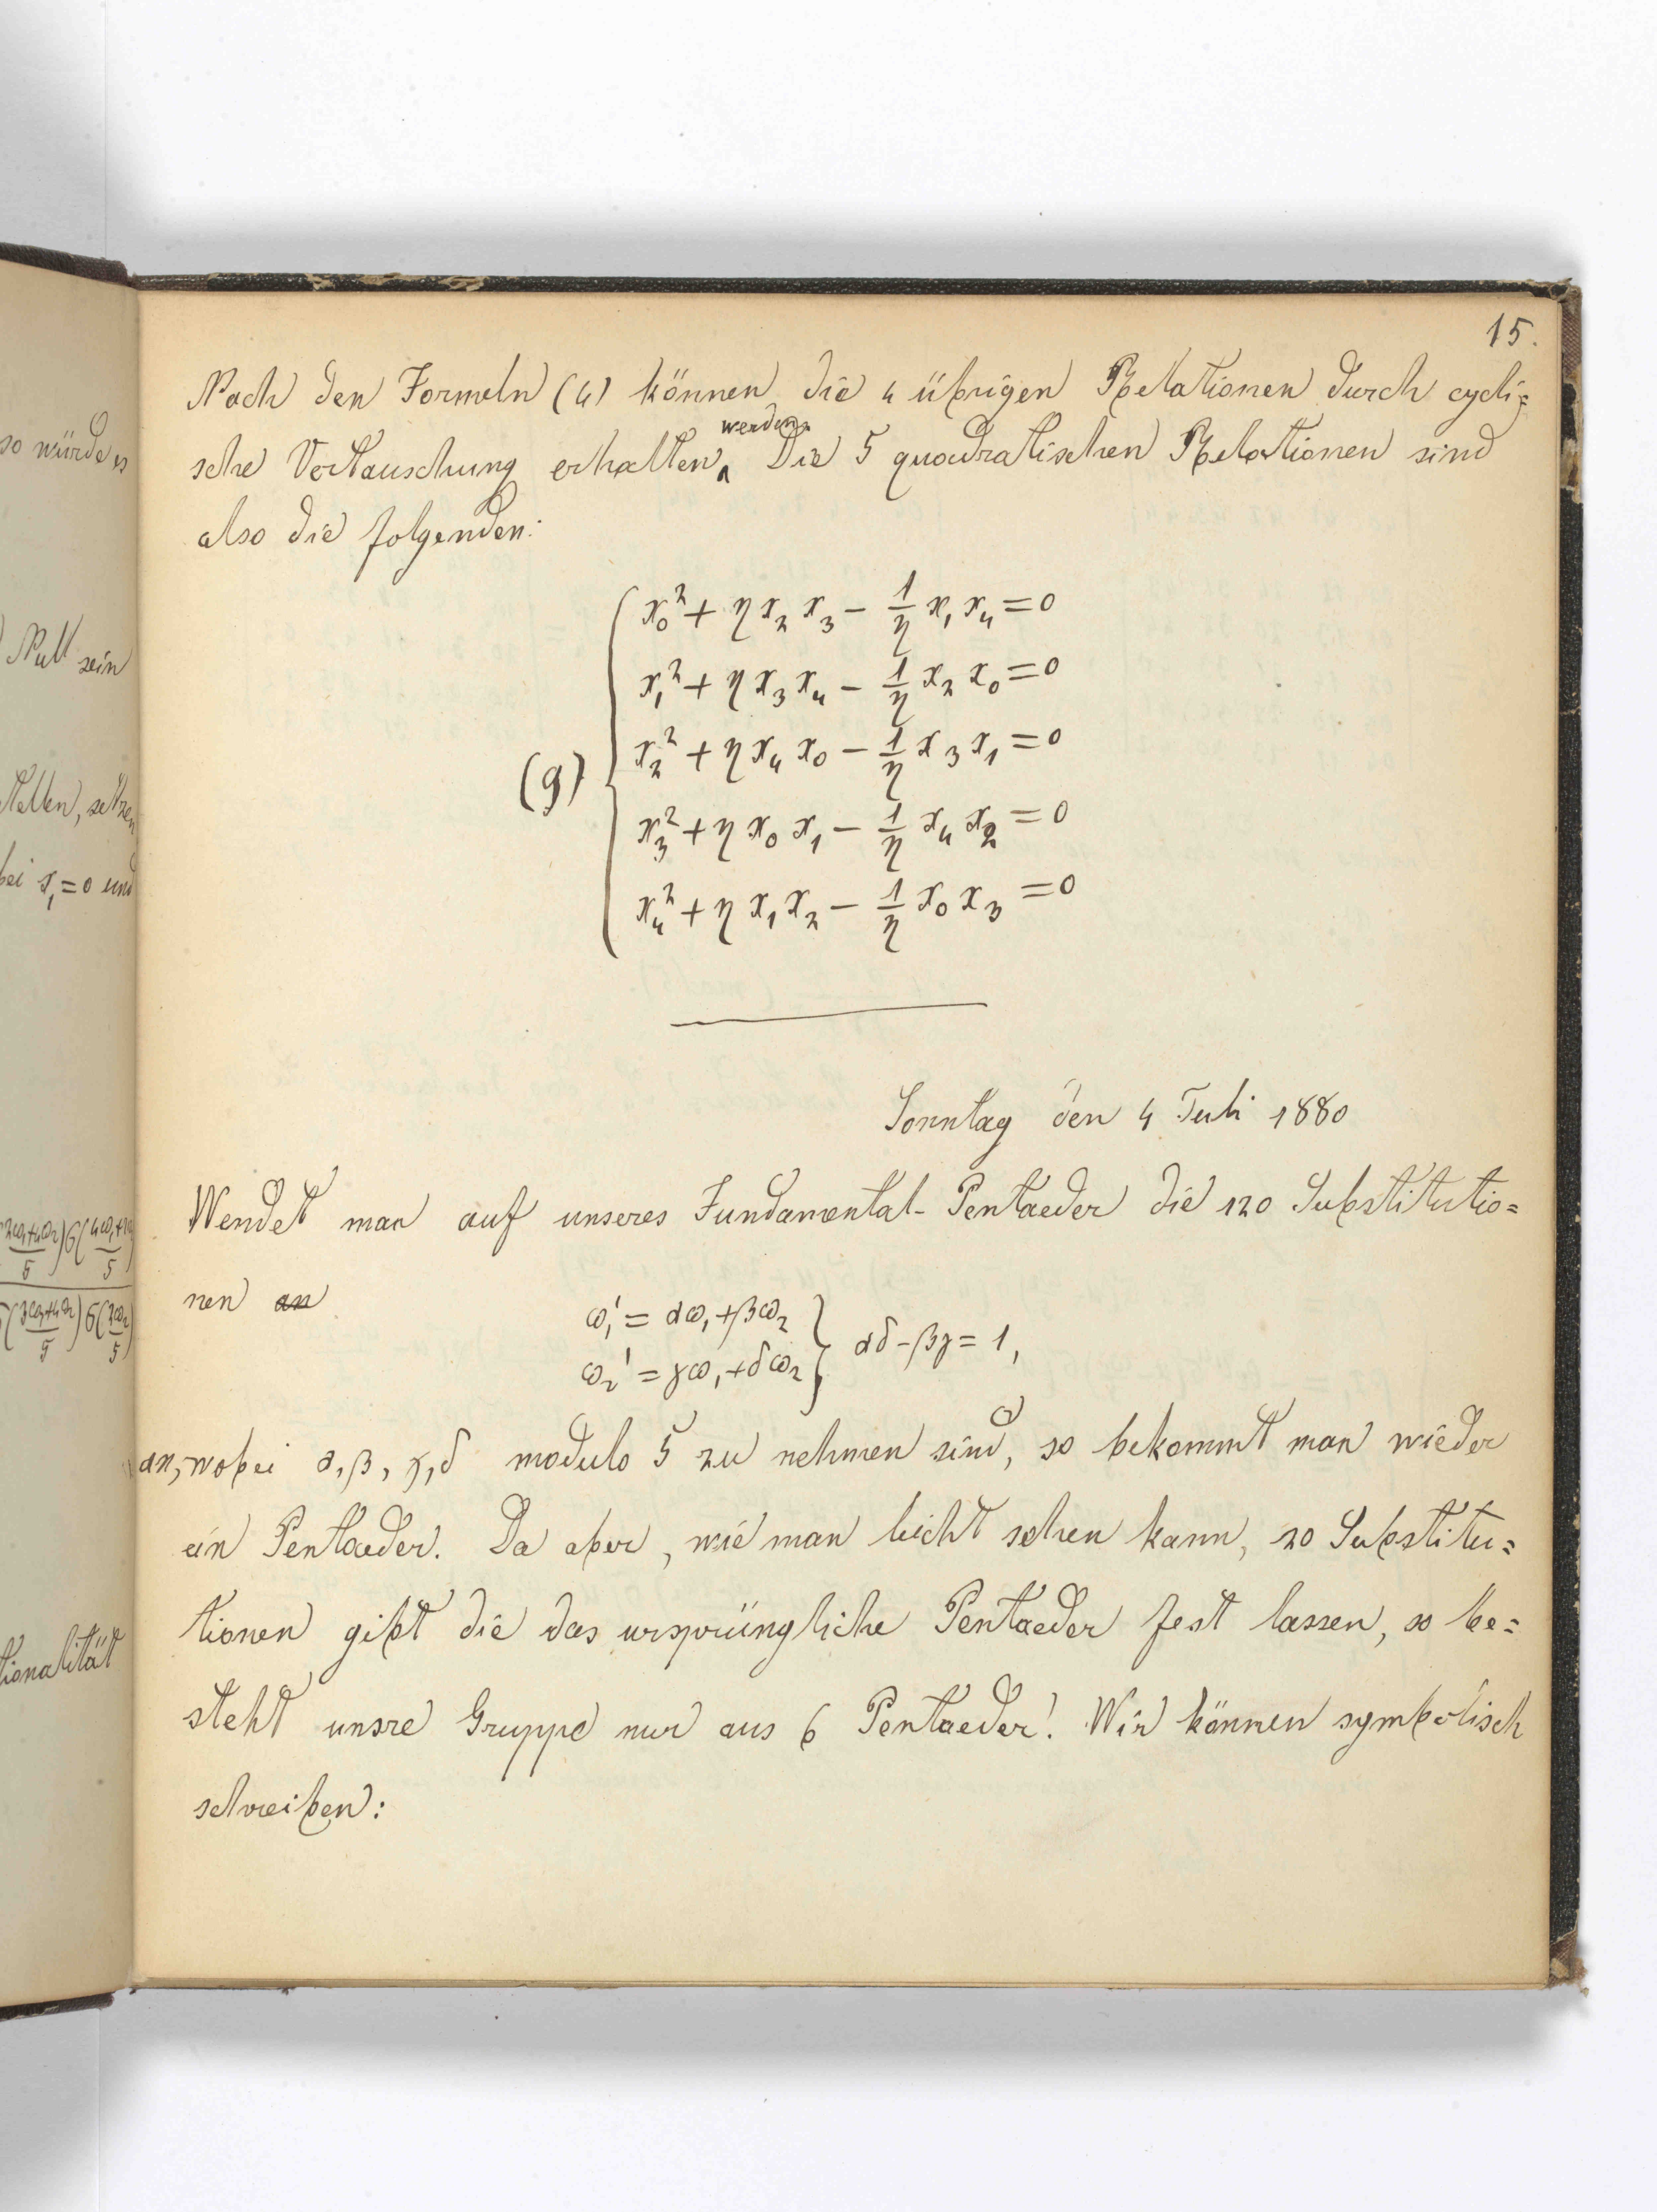 15.
Nach den Formeln (4) können die 4 übrigen Relationen durch cycli=
sche Vertauschung erhalten werden. Die 5 quadratischen Relationen sind
also die folgenden:
x₀² + η x₂ x₃ − 1/η x₁ x₄ = 0
x₁² + η x₃ x₄ − 1/η x₂ x₀ = 0
(9) x₂² + η x₄ x₀ − 1/η x₃ x₁ = 0
x₃² + η x₀ x₁ − 1/η x₄ x₂ = 0
x₄² + η x₁ x₂ − 1/η x₀ x₃ = 0
Sonntag den 4 Juli 1880
Wendet man auf unseres Fundamental-Pentaeder die 120 Substitutio=
nen an
ω₁' = αω₁ + βω₂
ω₂' = γω₁ + δω₂ } αδ − βγ = 1,
an, wobei α, β, γ, δ modulo 5 zu nehmen sind, so bekommt man wieder
ein Pentaeder. Da aber, wie man leicht sehen kann, 20 Substitu=
tionen gibt die das ursprüngliche Pentaeder fest lassen, so be=
steht unsre Gruppe nur aus 6 Pentaeder! Wir können symbolisch
schreiben:
so würde es
Null sein
tellen, setzen
bei x₁ = 0 und
tionalität